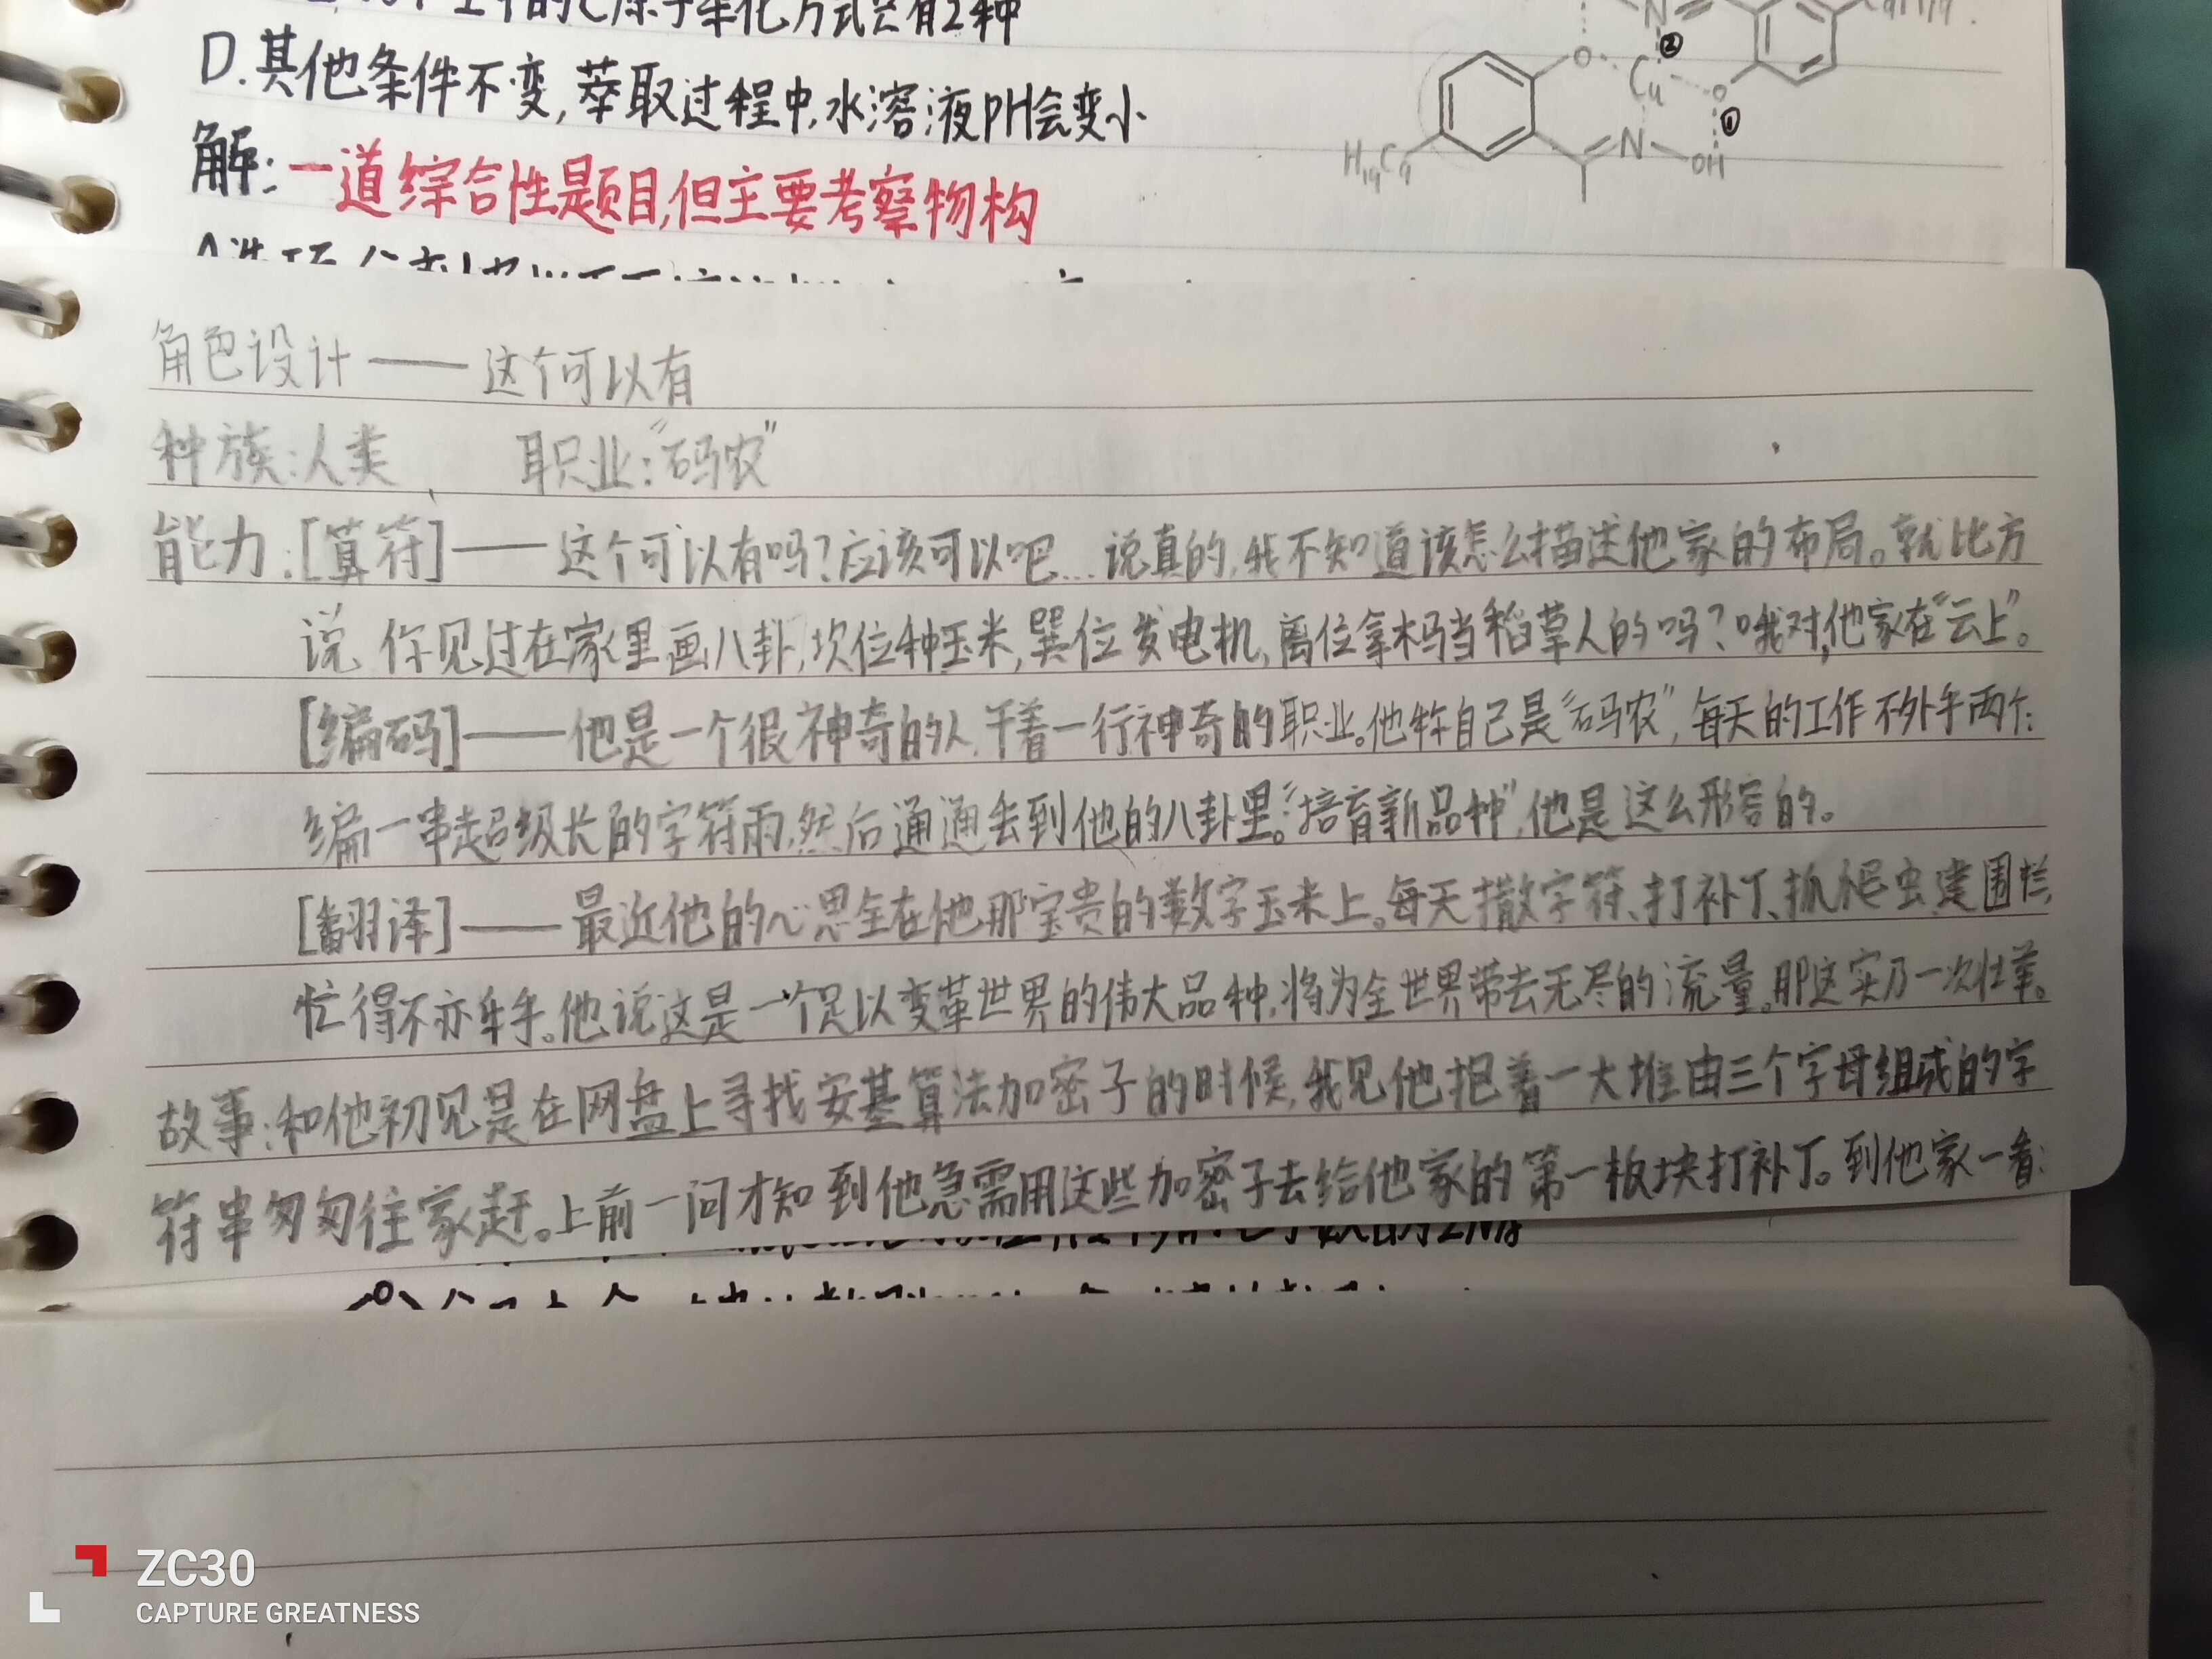 D.其他条件不变,萃取过程中,水溶液pH会变小
解:一道综合性题目,但主要考察物构
N
②
Cu
O
O
①
N
OH
H₁₉C₉
角色设计——这个可以有
种族:人类、 职业:“码农”
能力:[算符]——这个可以有吗?应该可以吧...说真的,我不知道该怎么描述他家的布局。就比方
说 你见过在家里画八卦,坎位种玉米,巽位发电机,离位拿木马当稻草人的吗?哦对,他家在“云上”。
[编码]——他是一个很神奇的人,干着一行神奇的职业。他称自己是“码农”,每天的工作不外乎两个:
编一串超级长的字符雨,然后通通丢到他的八卦里。“培育新品种”,他是这么形容的。
[翻译]——最近他的心思全在他那宝贵的数字玉米上。每天撒字符、打补丁、抓爬虫、建围栏,
忙得不亦乐乎。他说这是一个足以变革世界的伟大品种,将为全世界带去无尽的流量。那这实乃一次壮举。
故事:和他初见是在网盘上寻找安基算法加密子的时候,我见他抱着一大堆由三个字母组成的字
符串匆匆往家赶。上前一问才知到他急需用这些加密子去给他家的第一板块打补丁。到他家一看:
ZC30
CAPTURE GREATNESS